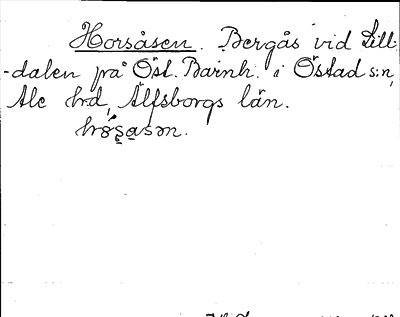 Horsåsen. Bergås vid Lill-
-dalen på Öst. Barnh. i Östad s:n,
Ale hd, Älfsborgs län.